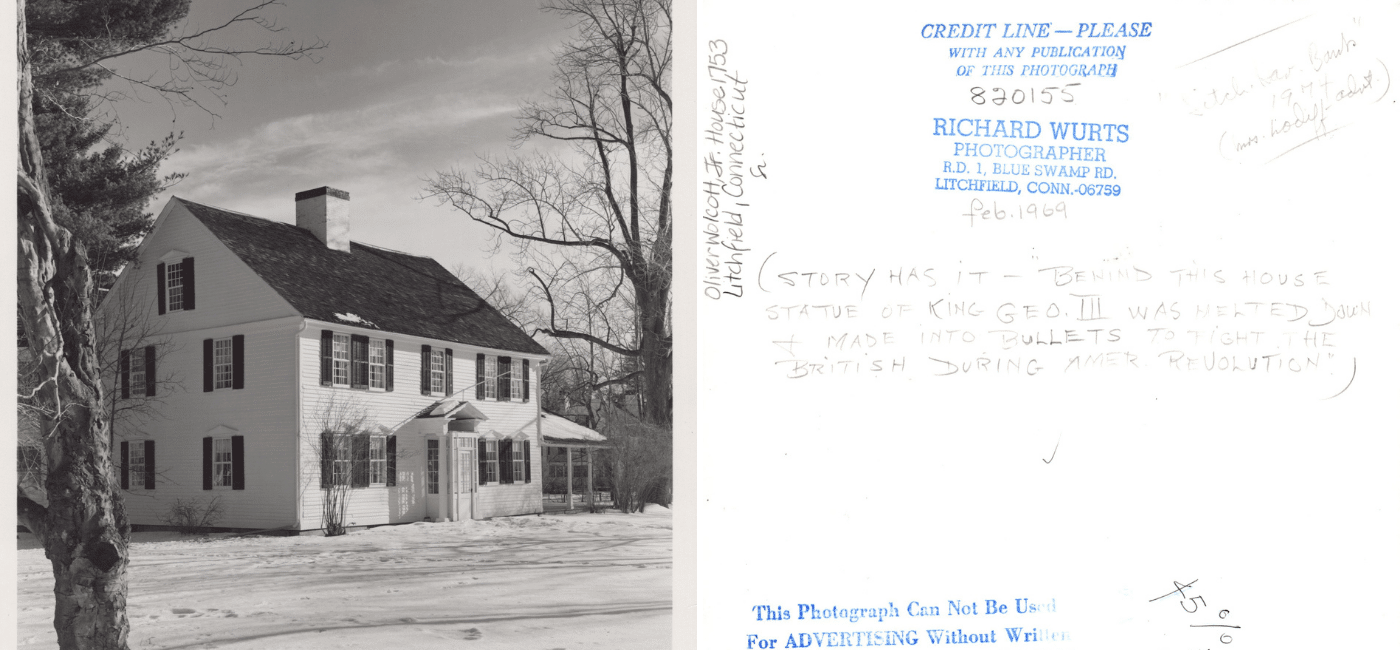 Oliver Wolcott, Jr. House 1753
Litchfield, Connecticut
Sr.
CREDIT LINE — PLEASE
WITH ANY PUBLICATION
OF THIS PHOTOGRAPH
820155
RICHARD WURTS
PHOTOGRAPHER
R.D. 1, BLUE SWAMP RD.
LITCHFIELD, CONN.-06759
feb. 1969
Bank"
1974
(mrs. advt.)
(STORY HAS IT — "BEHIND THIS HOUSE
STATUE OF KING GEO. III WAS MELTED DOWN
+ MADE INTO BULLETS TO FIGHT THE
BRITISH DURING AMER. REVOLUTION".)
This Photograph Can Not Be Used
For ADVERTISING Without Written